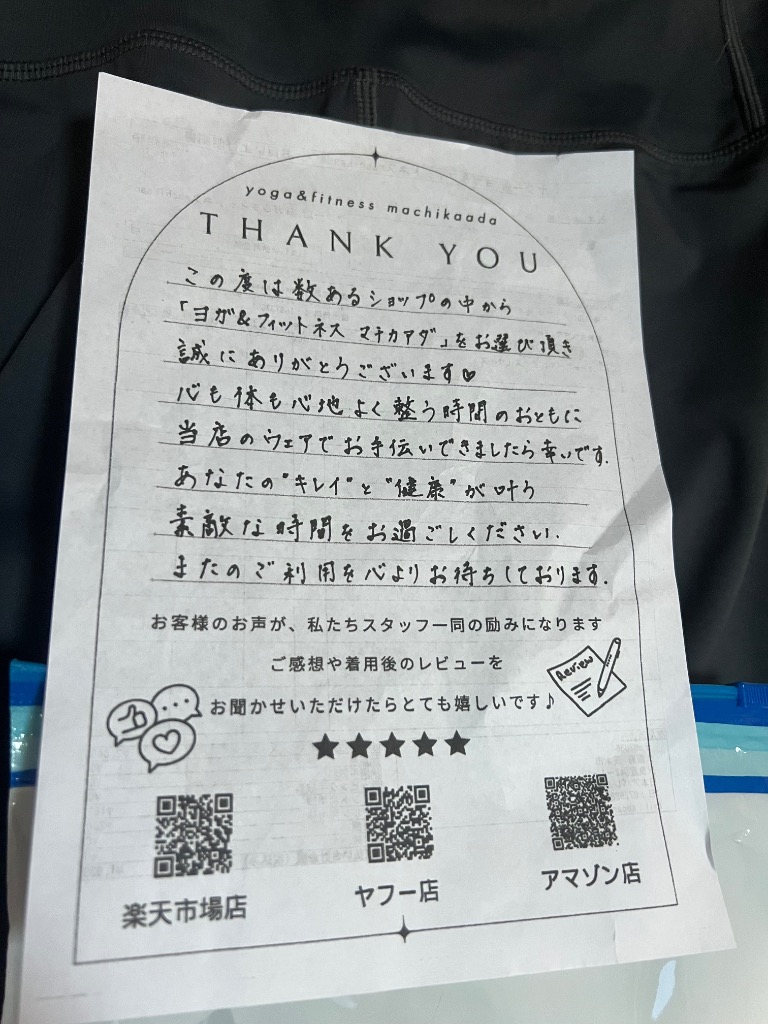 yoga&fitness machikaada
THANK YOU
この度は数あるショップの中から
「ヨガ&フィットネス マチカアダ」をお選び頂き
誠にありがとうございます♡
心も体も心地よく整う時間のおともに
当店のウェアでお手伝いできましたら幸いです.
あなたの"キレイ"と"健康"が叶う
素敵な時間をお過ごしください.
またのご利用を心よりお待ちしております.
お客様のお声が、私たちスタッフ一同の励みになります
ご感想や着用後のレビューを
Review
お聞かせいただけたらとても嬉しいです♪
★★★★★
楽天市場店
ヤフー店
アマゾン店